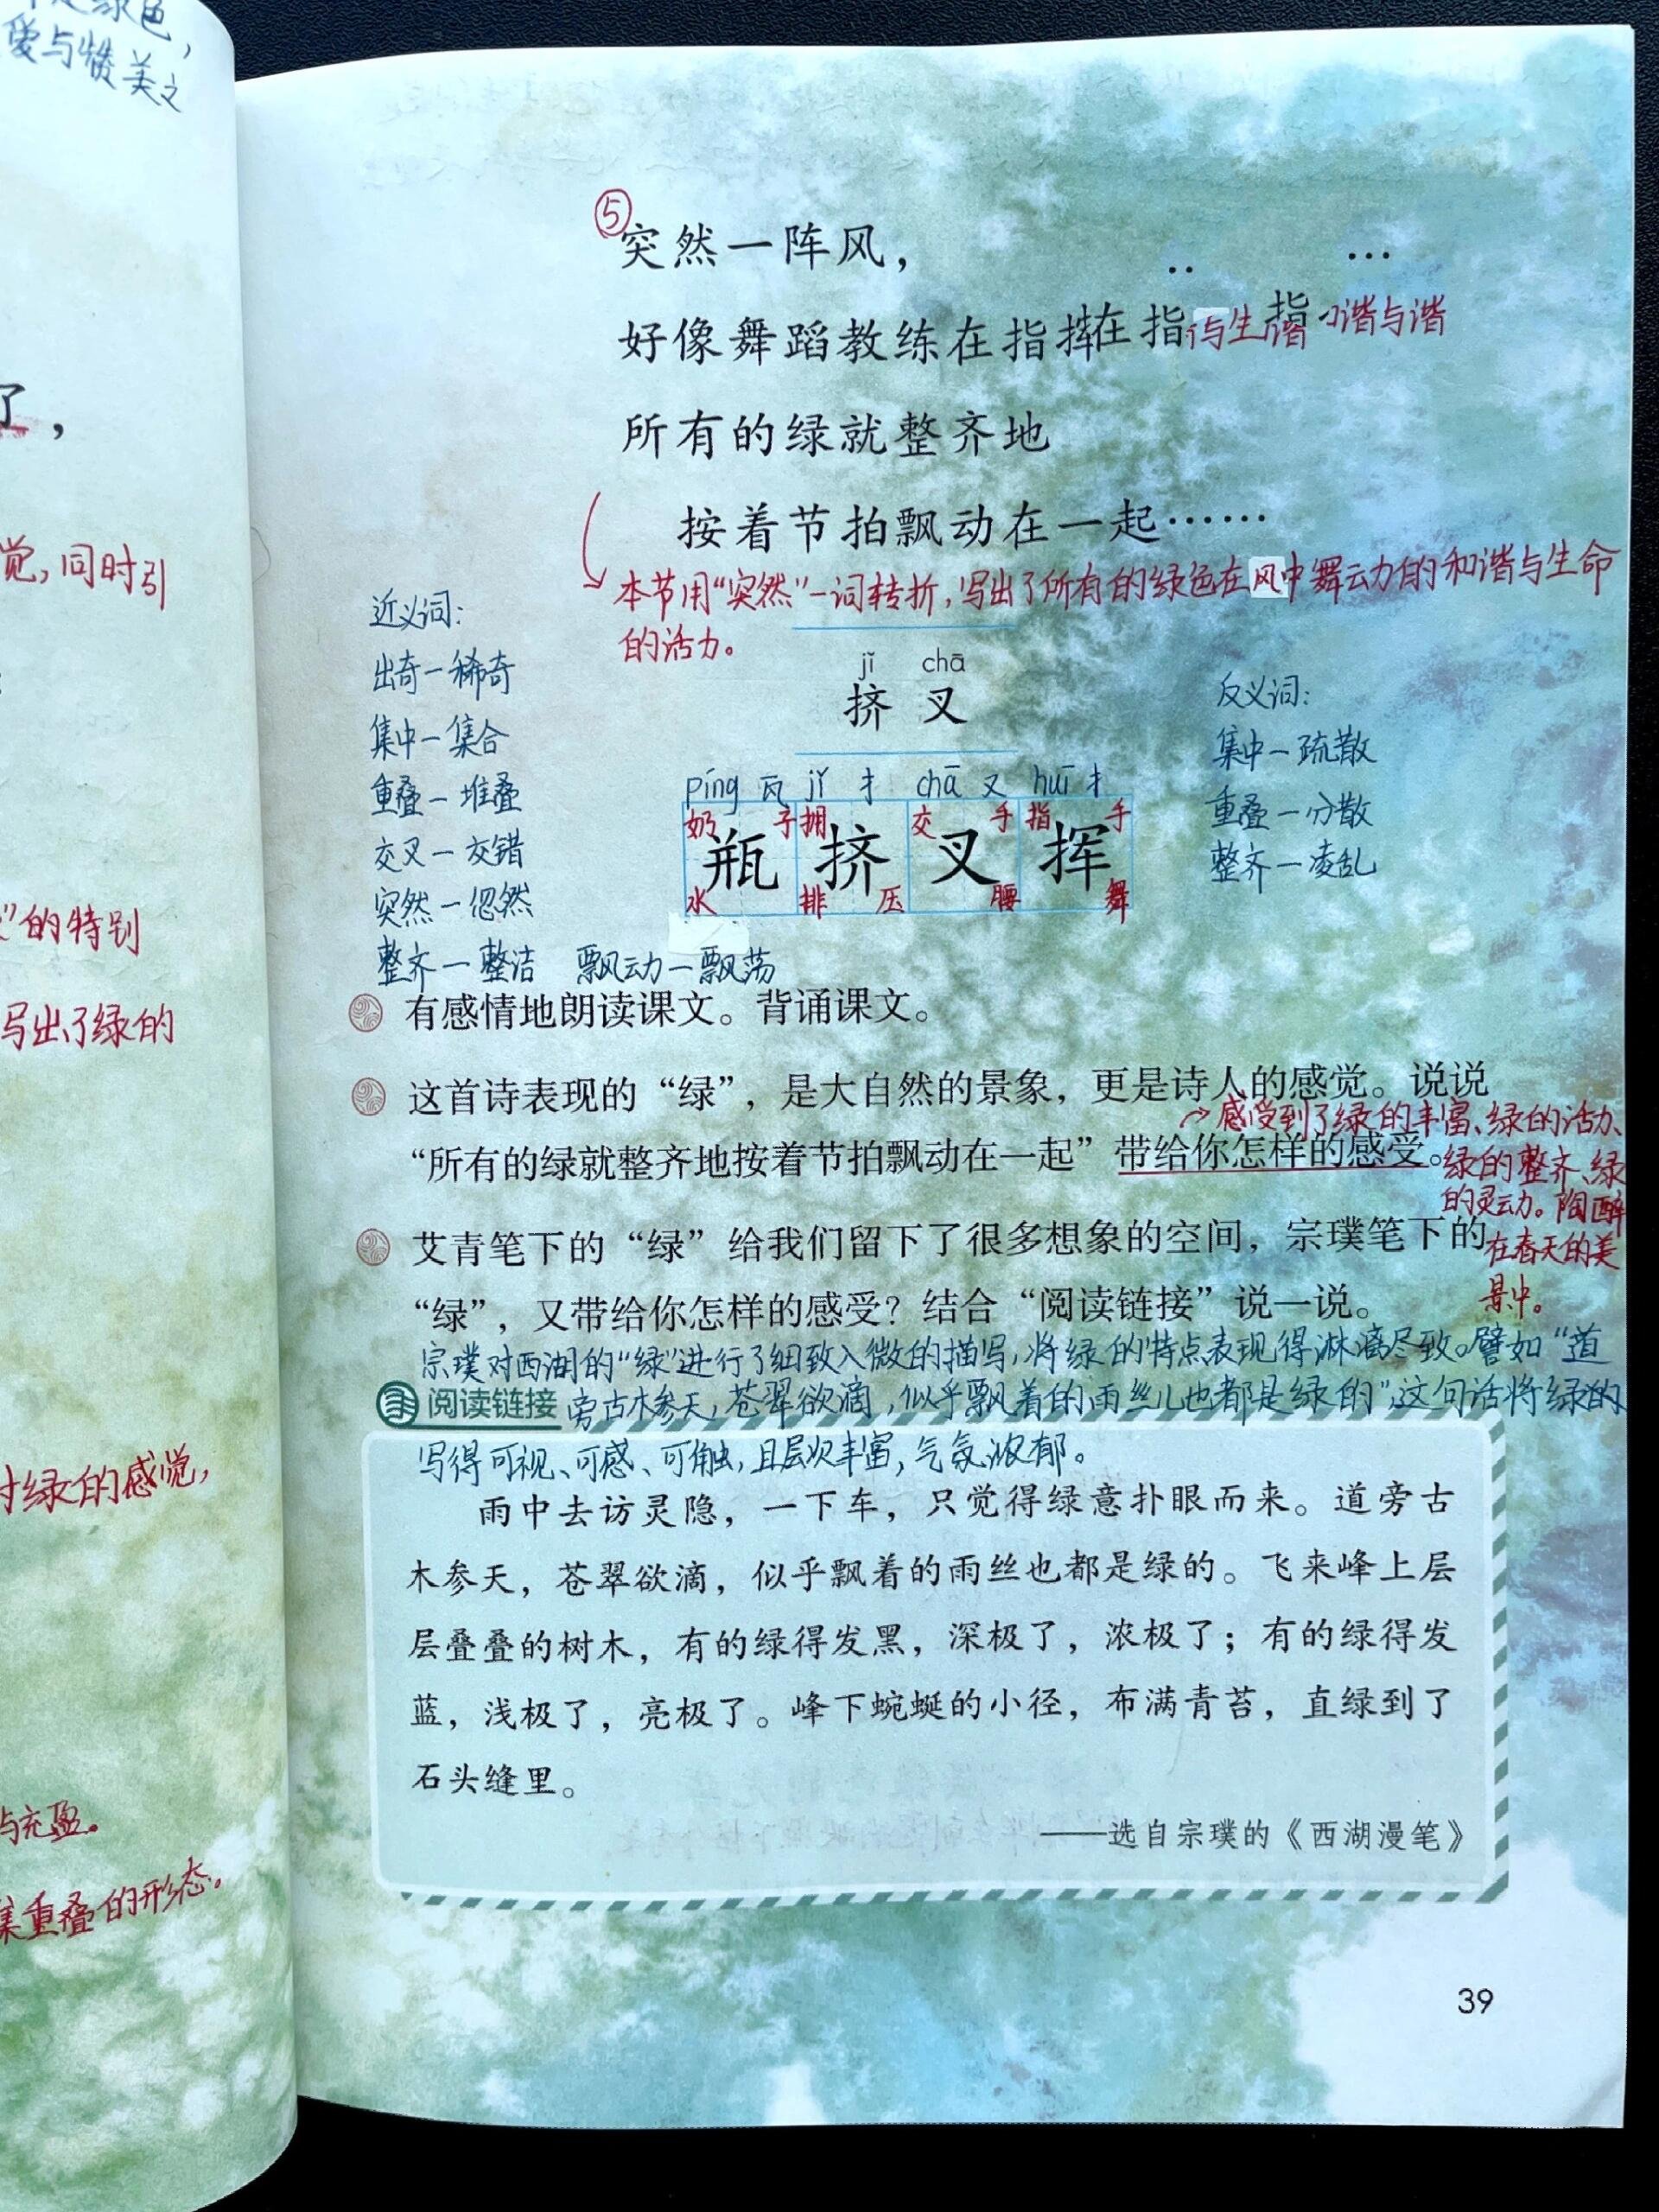 是绿色，
爱与赞美之
了，
觉，同时引
”的特别
写出了绿的
对绿的感觉，
与充盈。
集重叠的形态。
⑤
突然一阵风，
好像舞蹈教练在指挥在指 与生谐 指 谐与谐
所有的绿就整齐地
按着节拍飘动在一起……
本节用“突然”一词转折，写出了所有的绿色在风中舞动的和谐与生命
的活力。
近义词：
出奇—稀奇
集中—集合
重叠—堆叠
交叉—交错
突然—忽然
整齐—整洁 飘动—飘荡
jǐ chā
挤 叉
反义词：
集中—疏散
重叠—分散
整齐—凌乱
píng 瓦 jǐ 扌 chā 又 huī 扌
奶 子 拥 交 手 指 手
瓶 挤 叉 挥
水 排 压 腰 舞
有感情地朗读课文。背诵课文。
这首诗表现的“绿”，是大自然的景象，更是诗人的感觉。说说
“所有的绿就整齐地按着节拍飘动在一起”带给你怎样的感受。
感受到了绿的丰富、绿的活力、
绿的整齐、绿
的灵动。陶醉
在春天的美
景中。
艾青笔下的“绿”给我们留下了很多想象的空间，宗璞笔下的
“绿”，又带给你怎样的感受？结合“阅读链接”说一说。
宗璞对西湖的“绿”进行了细致入微的描写，将绿的特点表现得淋漓尽致。譬如“道
旁古木参天，苍翠欲滴，似乎飘着的雨丝儿也都是绿的”，这句话将绿的
写得可视、可感、可触，且层次丰富，气氛浓郁。
阅读链接
雨中去访灵隐，一下车，只觉得绿意扑眼而来。道旁古
木参天，苍翠欲滴，似乎飘着的雨丝也都是绿的。飞来峰上层
层叠叠的树木，有的绿得发黑，深极了，浓极了；有的绿得发
蓝，浅极了，亮极了。峰下蜿蜒的小径，布满青苔，直绿到了
石头缝里。
——选自宗璞的《西湖漫笔》
39